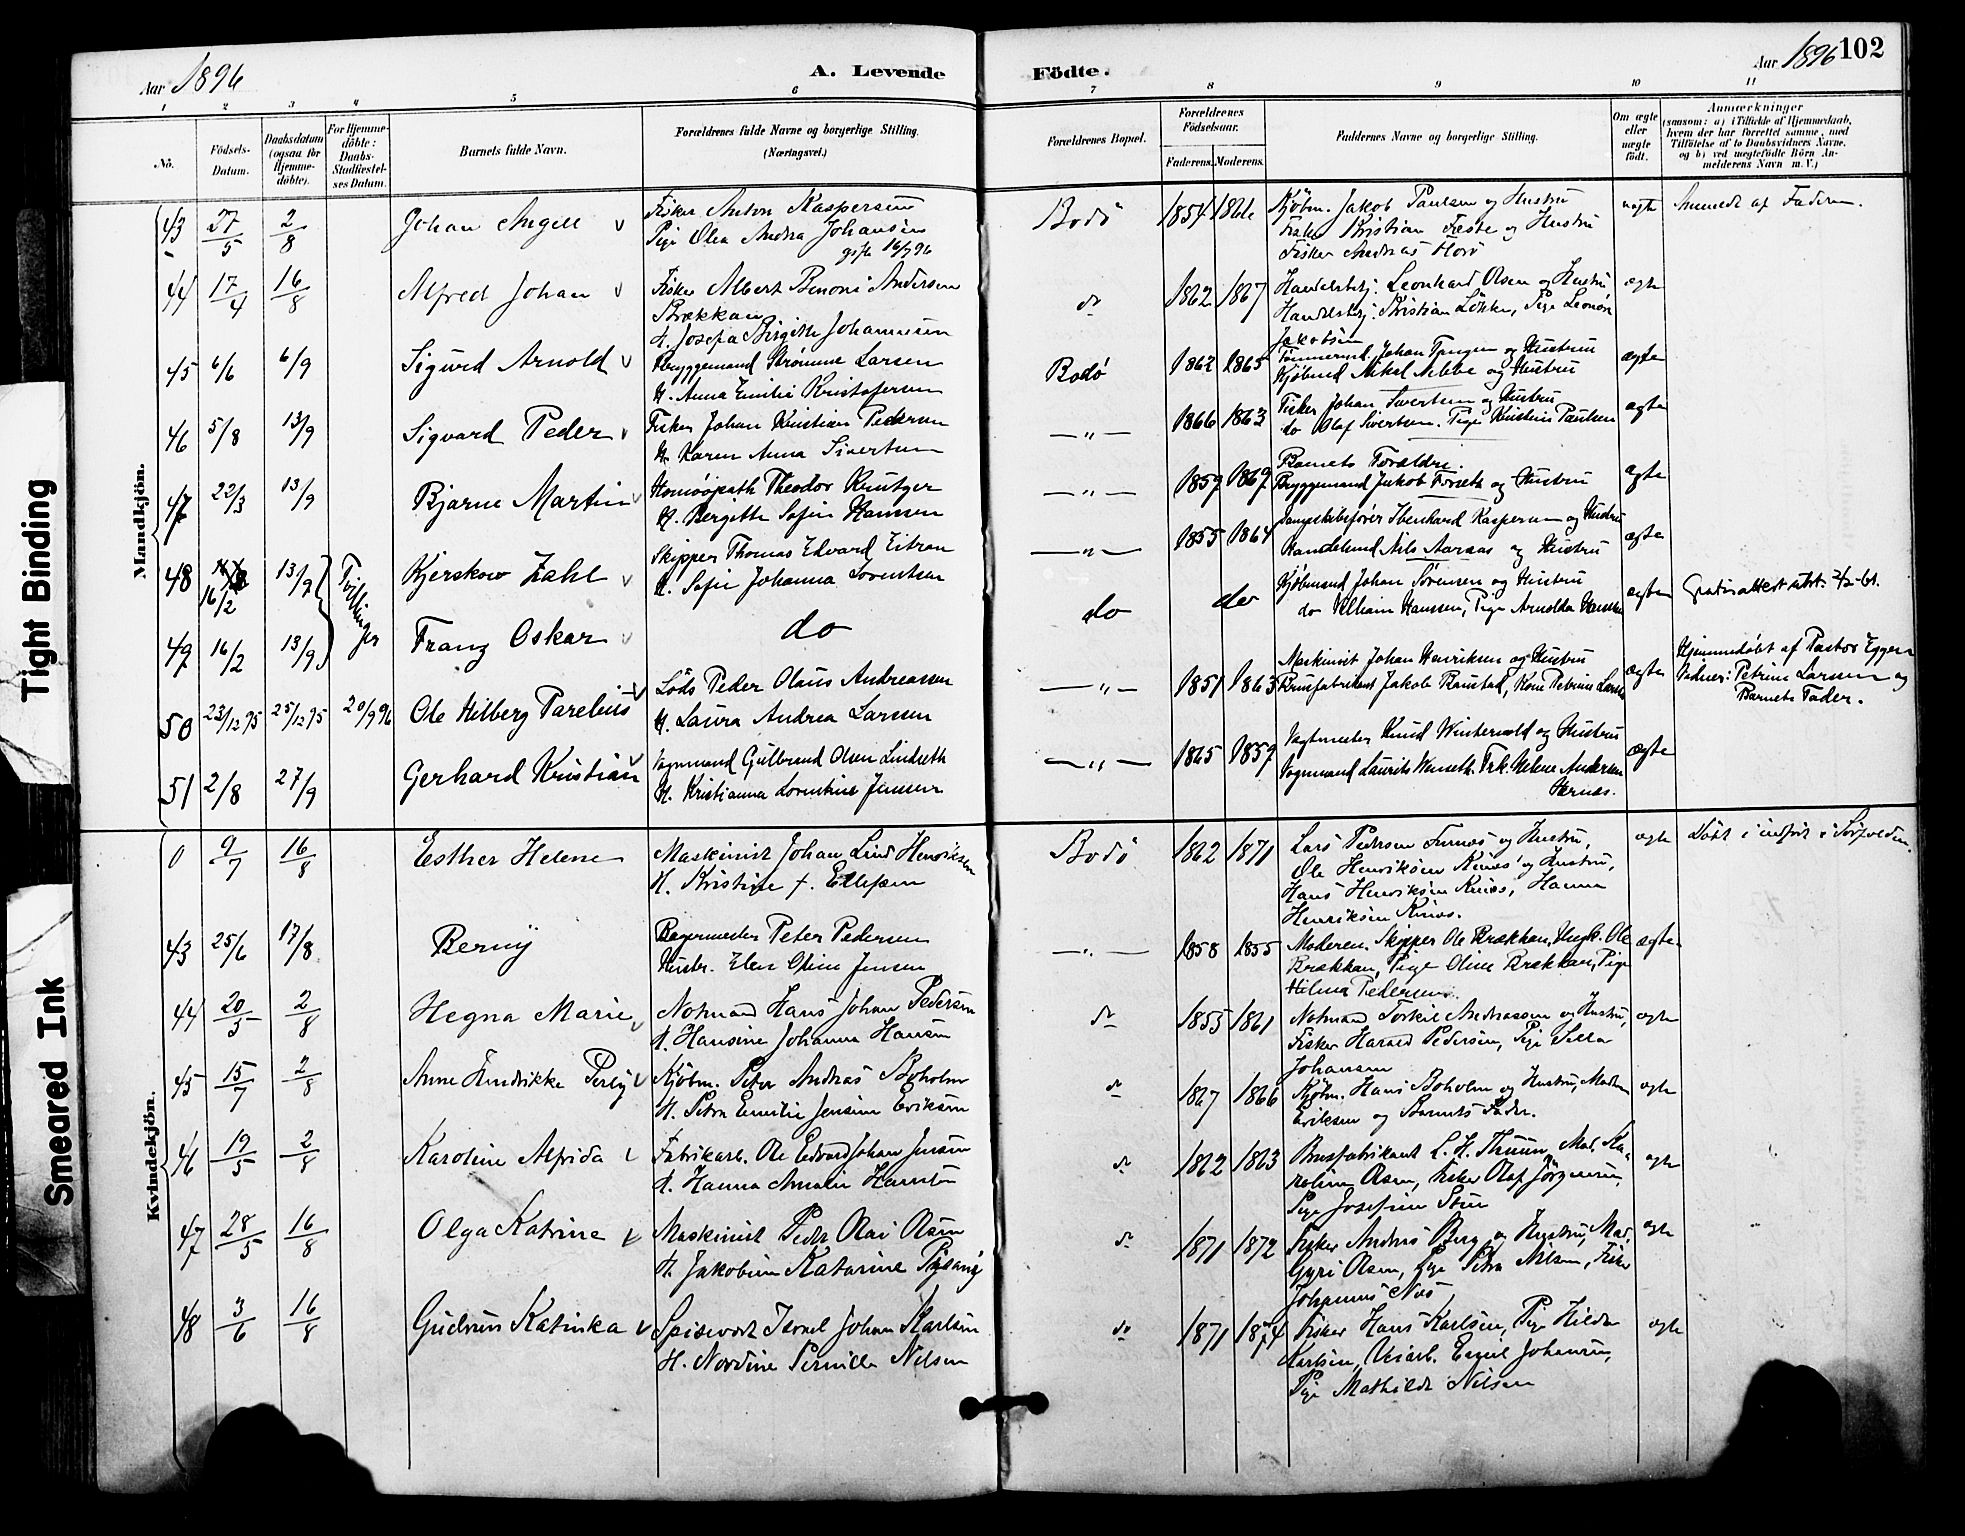 Aar 1896
A. Levende
Födte.
Aar 1896
102
1 2 3 4 5 6 7 8 9 10 11
No.
Födsels-Datum.
Daabsdatum (ogsaa for Hjemme-döbte).
For Hjemme-döbte: Daabs-Stadfæstel-ses Datum.
Barnets fulde Navn.
Forældrenes fulde Navne og borgerlige Stilling.
(Næringsvei.)
Forældrenes Bopæl.
Forældrenes Födselsaar.
Faderens. Moderens.
Faddernes Navne og borgerlige Stilling.
Om ægte eller uægte födt.
Anmærkninger
(saasom: a) i Tilfælde af Hjemmedaab,
hvem der har forrettet samme, med
Tilföielse af to Daabsvidners Navne,
og b) ved uegtefödte Börn An-
melderens Navn m. V.)
Tight Binding
Smeared Ink
Mandkjön.
43 27/5 2/8 Johan Angell
Fisker Anton Kaspersen
Pige Olea Andrea Johansen
gift 16/7 96
Bodö 1854
Kjöbm. Jakob Paulsen og Hustru
Fisker Kristian Feste og Hustru
Fisker Andreas
uægte
Anmeldt af Faderen.
44 17/4 16/8 Alfred Johan
Fisker Albert Benoni Andersen
Brækkan
H. Josefa Birgitte Johannesen
do 1862 1867
Handelsbetj. Leonhard Olsen og Hustru
Handelsbetj. Kristian Lökke, Pige Leonore
Jakobsen
ægte
45 6/6 6/9 Sigurd Arnold
Bryggemand Strömme Larsen
H. Anna Emilie Kristofersen
Bodö 1862 1865
Tömmermd. Johan Tangen og Hustru
Kjöbmd Mikal Nebbe og Hustru
ægte
46 5/8 13/9 Sigvard Peder
Fisker Johan Kristian Pedersen
H. Karen Anna Sivertsen
—"— 1866 1863
Fisker Johan Sivertsen og Hustru
do Olaf Sivertsen. Pige Kristine Paulsen
ægte
47 22/3 13/9 Bjarne Martin
Homöopath Theodor Krutger
H. Bergette Sofie Hansen
—"— 1859 1869
Barnets Forældre.
Bryggemand Jakob Forseth og Hustru
ægte
48 16/2 13/9 Kjerskow Zahl
Tvillinger
Skipper Thomas Edvard Eitran
H. Sofie Johanna Lorentsen
—"— 1855 1864
Dampskibsförer Ebenhard Kaspersen og Hustru
Handelsmd Nils Aarsas og Hustru
ægte
49 16/2 13/9 Franz Oskar
do
do do
Kjöbmand Johan Sörensen og Hustru
do William Hanssen, Pige Arnolda Hanssen
ægte
Gratisattest utst.
50 23/12 95 25/12 95 20/9 96 Ole Hilberg Parelius
Löds Peder Olaus Andreassen
H. Laura Andrea Larssen
—"— 1851 1863
Maskinist Johan Henriksen og Hustru
Brusfabrikant Jakob Ramstad, Kone Petrine Larsen
ægte
Hjemmedöbt af Pastor Eggen
Vidner: Petrine Larssen og
Barnets Fader.
51 2/8 27/9 Gerhard Kristian
Vognmand Gulbrand Olsen Lindseth
H. Kristianna Lorentine Jensen
—"— 1865 1859
Vagtmester Knud Winterwold og Hustru
Vognmand Laurits Wenseth. Frk. Helene Andersen
Hernæs.
ægte
Kvindekjön.
0 9/7 16/8 Esther Helene
Maskinist Johan Lind Henriksen
H. Kristine f. Ellefsen
Bodö 1862 1871
Lars Pedersen Furnes og Hustru,
Ole Henriksen Kines og Hustru,
Hans Henriksen Kines, Hanna
Henriksen Kines.
ægte
Döbt i indfört i Sörfolden.
43 25/6 17/8 Berny
Bagermester Peter Pedersen
Hustr. Elen Oline Jensen
—"— 1858 1855
Moderen. Skipper Ole Brækkan, Ungk. Ole
Brækkan, Pige Oline Brækkan, Pige
Hilma Pedersen.
ægte
44 20/5 2/8 Hegna Marie
Notmand Hans Johan Pedersen
H. Hansine Johanna Hansen
do 1855 1861
Notmand Torkil Andreassen og Hustru,
Fisker Harald Pedersen, Pige Silla
Johansen
ægte
45 15/7 2/8 Anne Hendrikke Perly
Kjöbm. Peter Andreas Boholm
H. Petra Emilie Jensine Eriksen
do 1867 1866
Kjöbm. Hans Boholm og Hustru, Madam
Eriksen og Barnets Fader.
ægte
46 19/5 2/8 Karoline Alfrida
Fabrikarb. Ole Edvard Johan Jensen
H. Hanna Amalie Hansen
do 1862 1863
Brusfabrikant L. H. Thuun, Mad. Ka-
roline Olsen, Fisker Olaf Jörgensen,
Pige Josefine Stue
ægte
47 28/5 16/8 Olga Katrine
Maskinist Peder Olai Olsen
H. Jakobine Katarine
do 1871 1872
Fisker Andreas Berg og Hustru, Mad.
Gyri Olsen, Pige Petra Nilsen, Fisker
Johannes Næs
ægte
48 3/6 16/8 Gudrun Katinka
Spisevert Israel Johan Karlsen
H. Nordine Pernille Nilsen
do 1871 1874
Fisker Hans Karlsen, Pige Hilda
Karlsen, Emil Johansen,
Pige Mathilde Nilsen
ægte